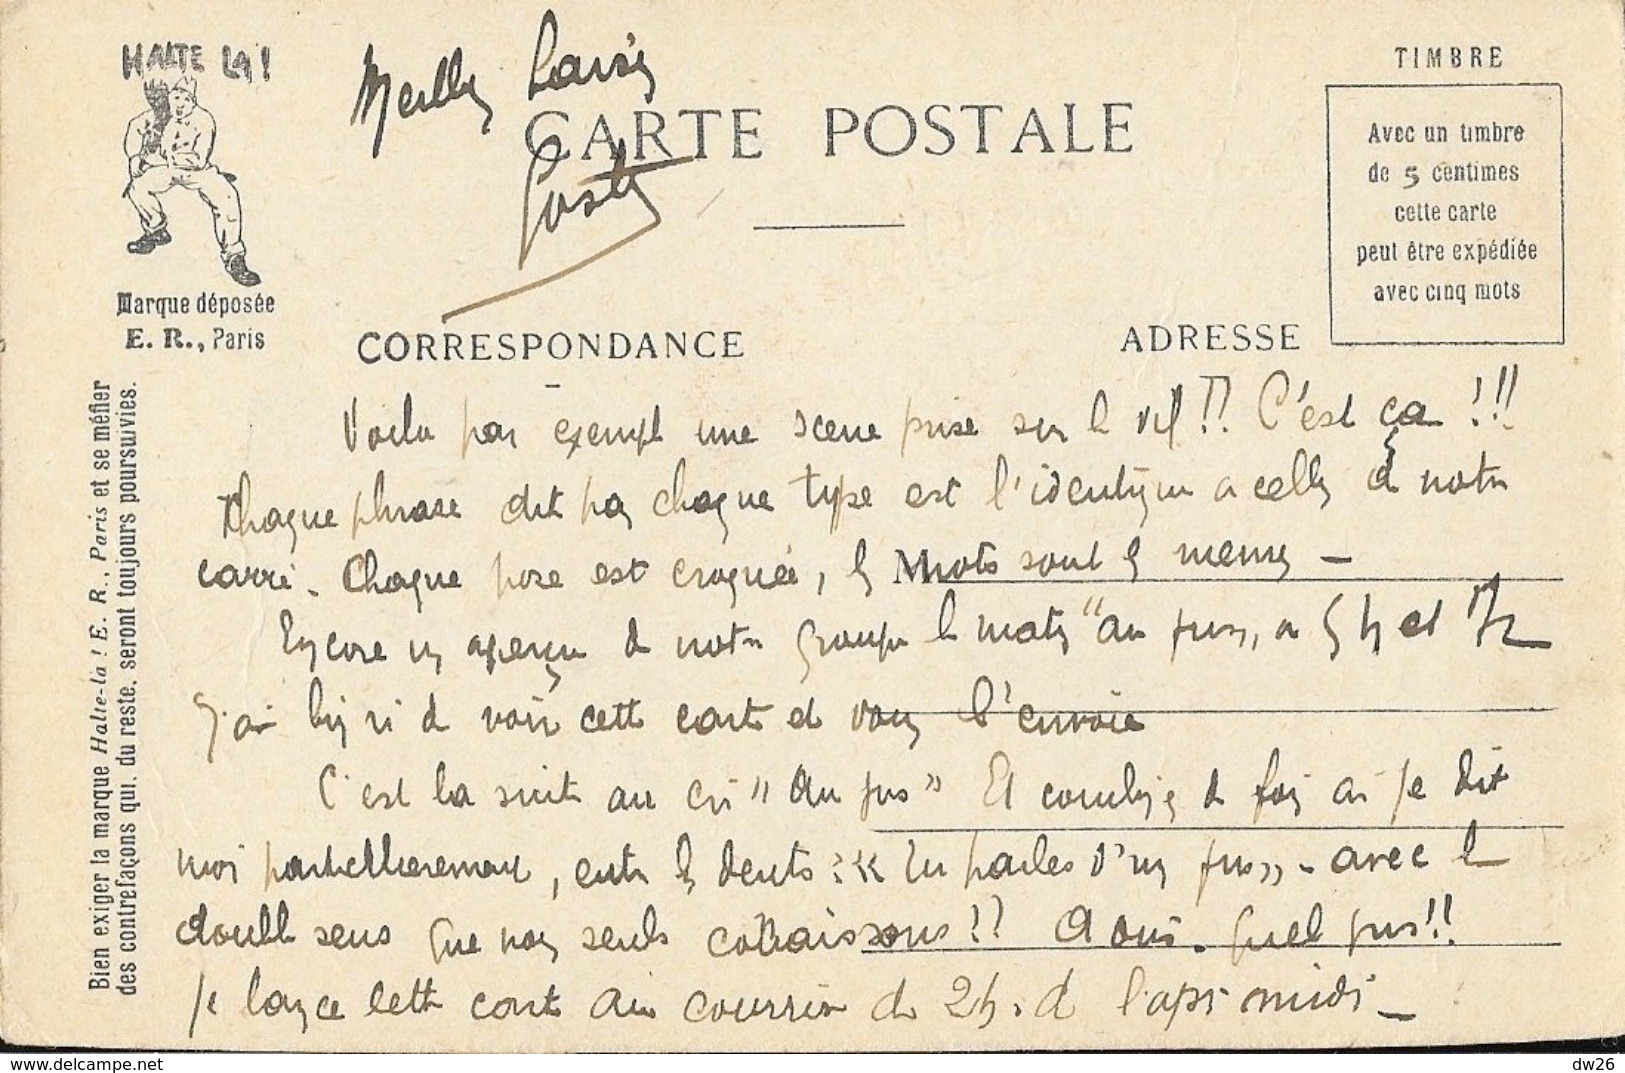 HALTE LA!
CARTE POSTALE
TIMBRE
Avec un timbre
de 5 centimes
cette carte
peut être expédiée
avec cinq mots
Marque déposée
E. R., Paris
CORRESPONDANCE
ADRESSE
Bien exiger la marque Halte-la ! E. R., Paris et se méfier
des contrefaçons qui, du reste, seront toujours poursuivies.
Voila par exempl une scene prise sur le vif !! C'est ça !!!
Chaque phrase dit par chaque type est l'identique a celles de notre
carré. Chaque pose est croquée, les Mots sont les memes —
Encore un aperçu de notre groupe le matin "au jus", a 5 h et 1/2
J'ai bien ri de voir cette carte et vous l'envoie
C'est la suite au cri "Au jus" Et combien de fois ai je dit
moi particulierement, entre les dents : « Tu parles d'un jus » - avec le
double sens que nous seuls connaissons !! A oui. quel jus !!
Je lance cette carte au courrier de 2 h. de l'aps midi —
dw26